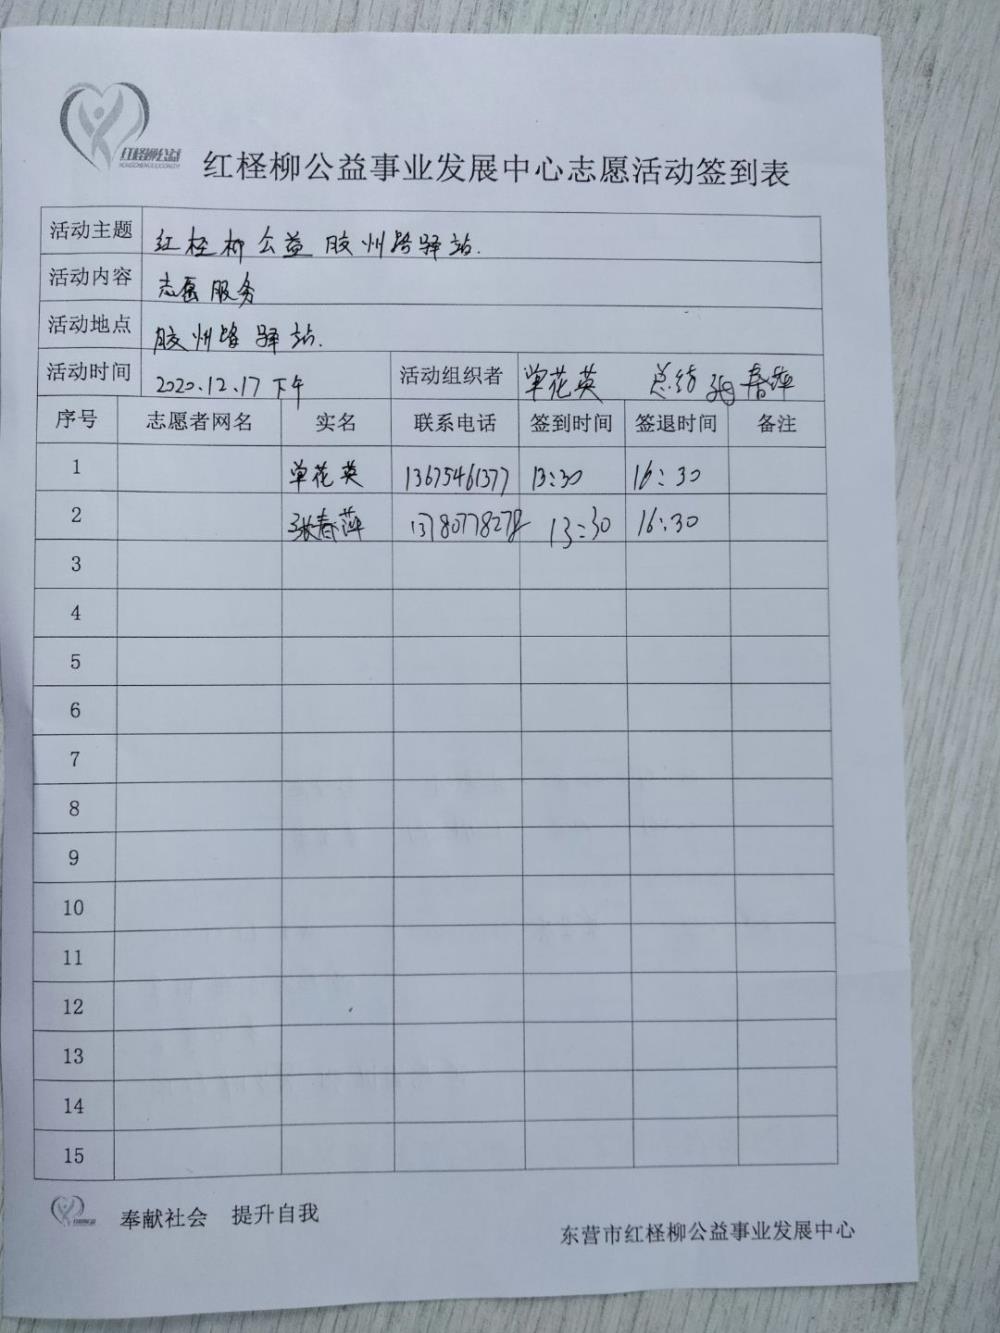 红柽柳公益
红柽柳公益事业发展中心志愿活动签到表
活动主题 红柽柳公益胶州路驿站.
活动内容 志愿服务
活动地点 胶州路驿站.
活动时间 2020.12.17下午 活动组织者 单花英 总结 张春萍
序号 志愿者网名 实名 联系电话 签到时间 签退时间 备注
1 单花英 13675461377 13:30 16:30
2 张春萍 13780778278 13:30 16:30
3
4
5
6
7
8
9
10
11
12
13
14
15
奉献社会 提升自我
东营市红柽柳公益事业发展中心